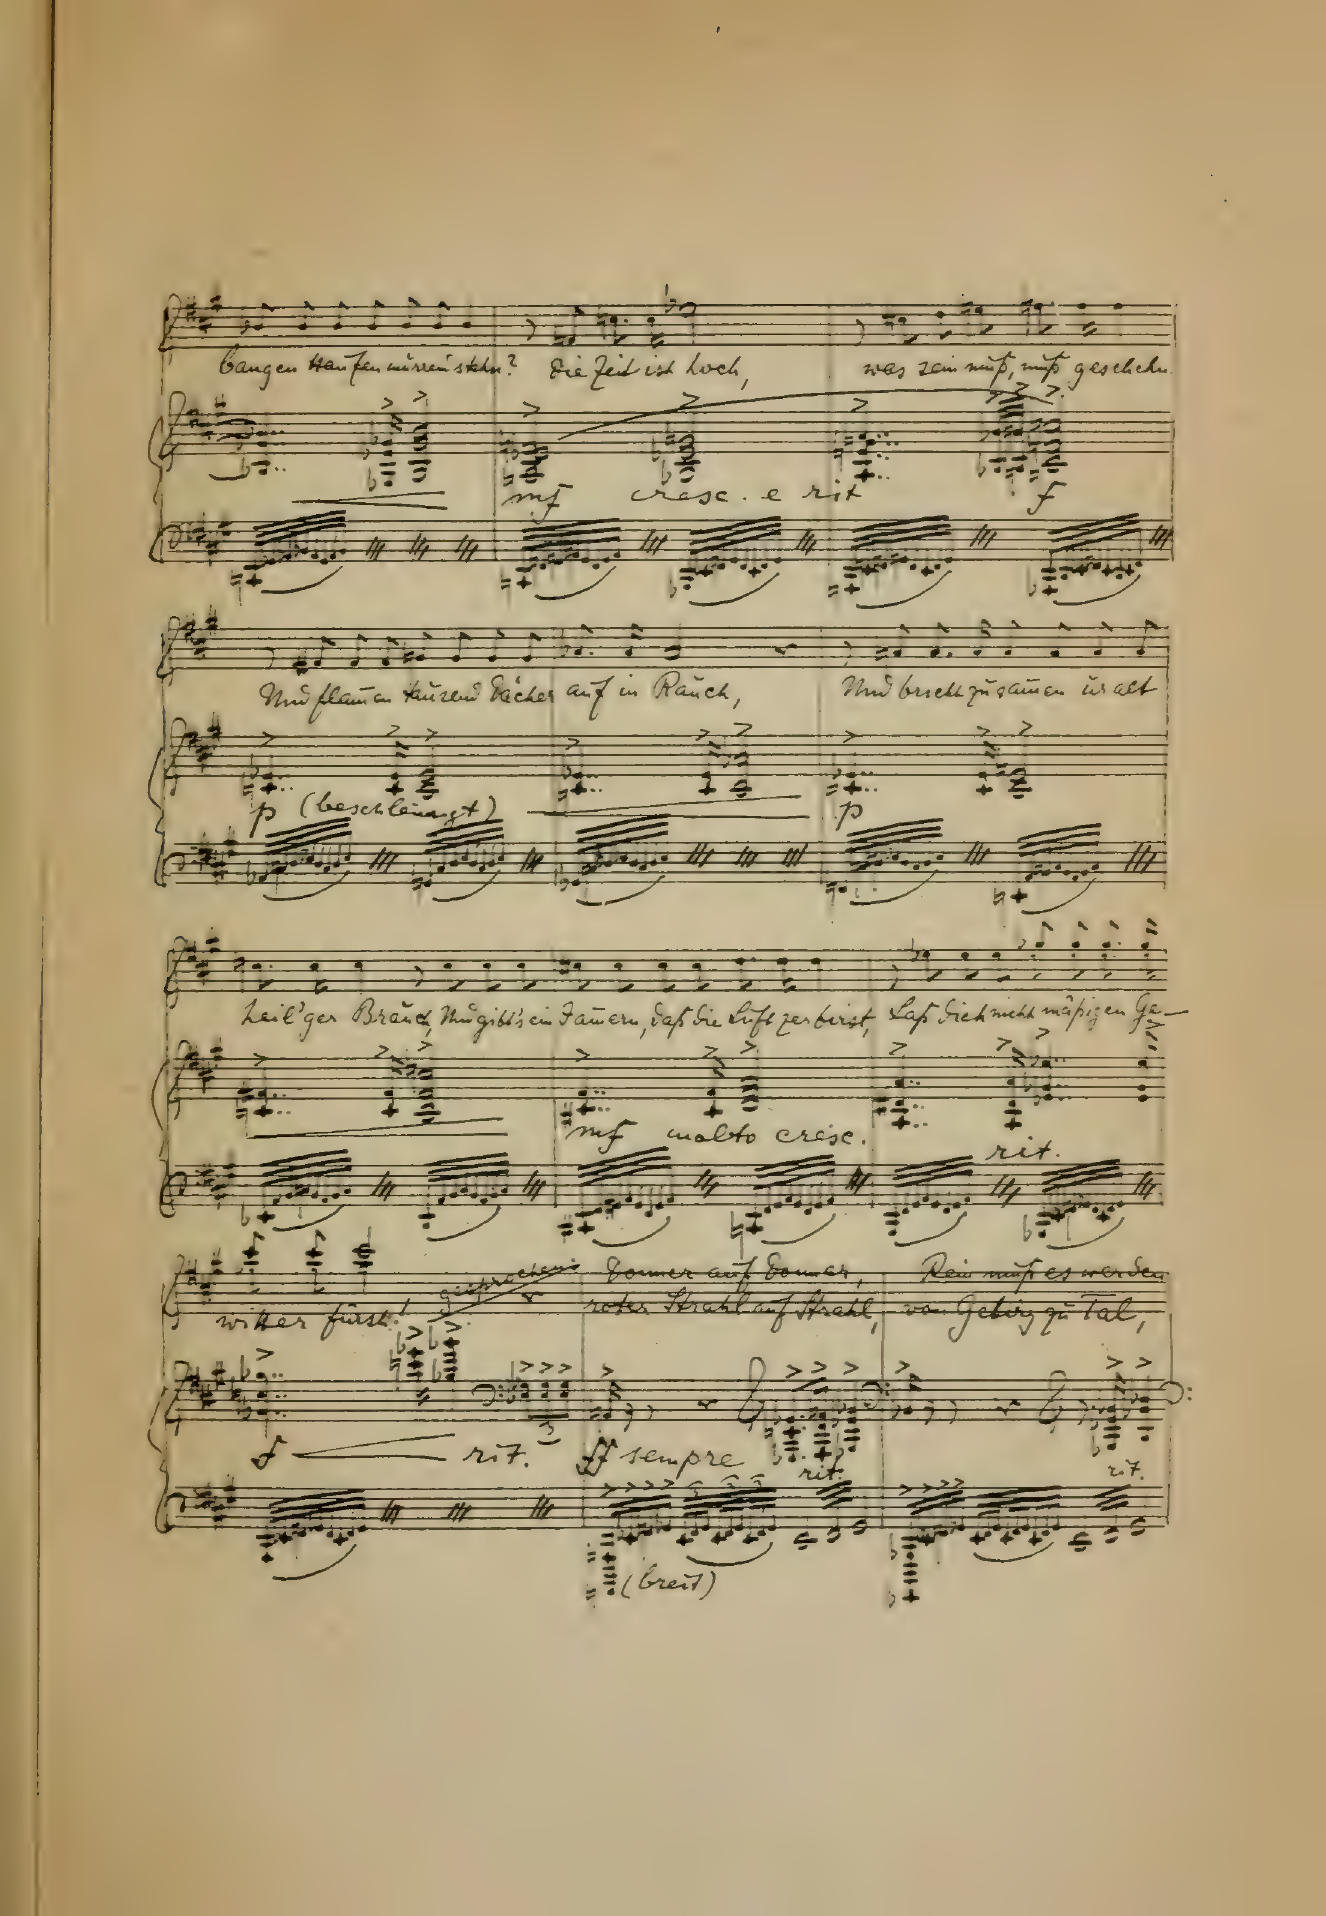 bangen Haufen murrein stehn? die Zeit ist hoch, was sein muß, muß geschehn
mf cresc. e rit f
Und flam̄en tausend Dächer auf in Rauch, Und bricht zusam̄en uralt
p (beschleunigt) p
heil'ger Brauch, Und gibt's ein Jam̄ern, daß die Luft zerbirst, Laß dich nicht mäßigen Ge-
mf molto cresc. rit.
witterfürst! gesprochen: Donner auf Donner, Rein muß es werden
roter Strahl auf Strahl, von Gebirg zu Tal,
3
f rit. ff sempre rit. rit.
(breit)